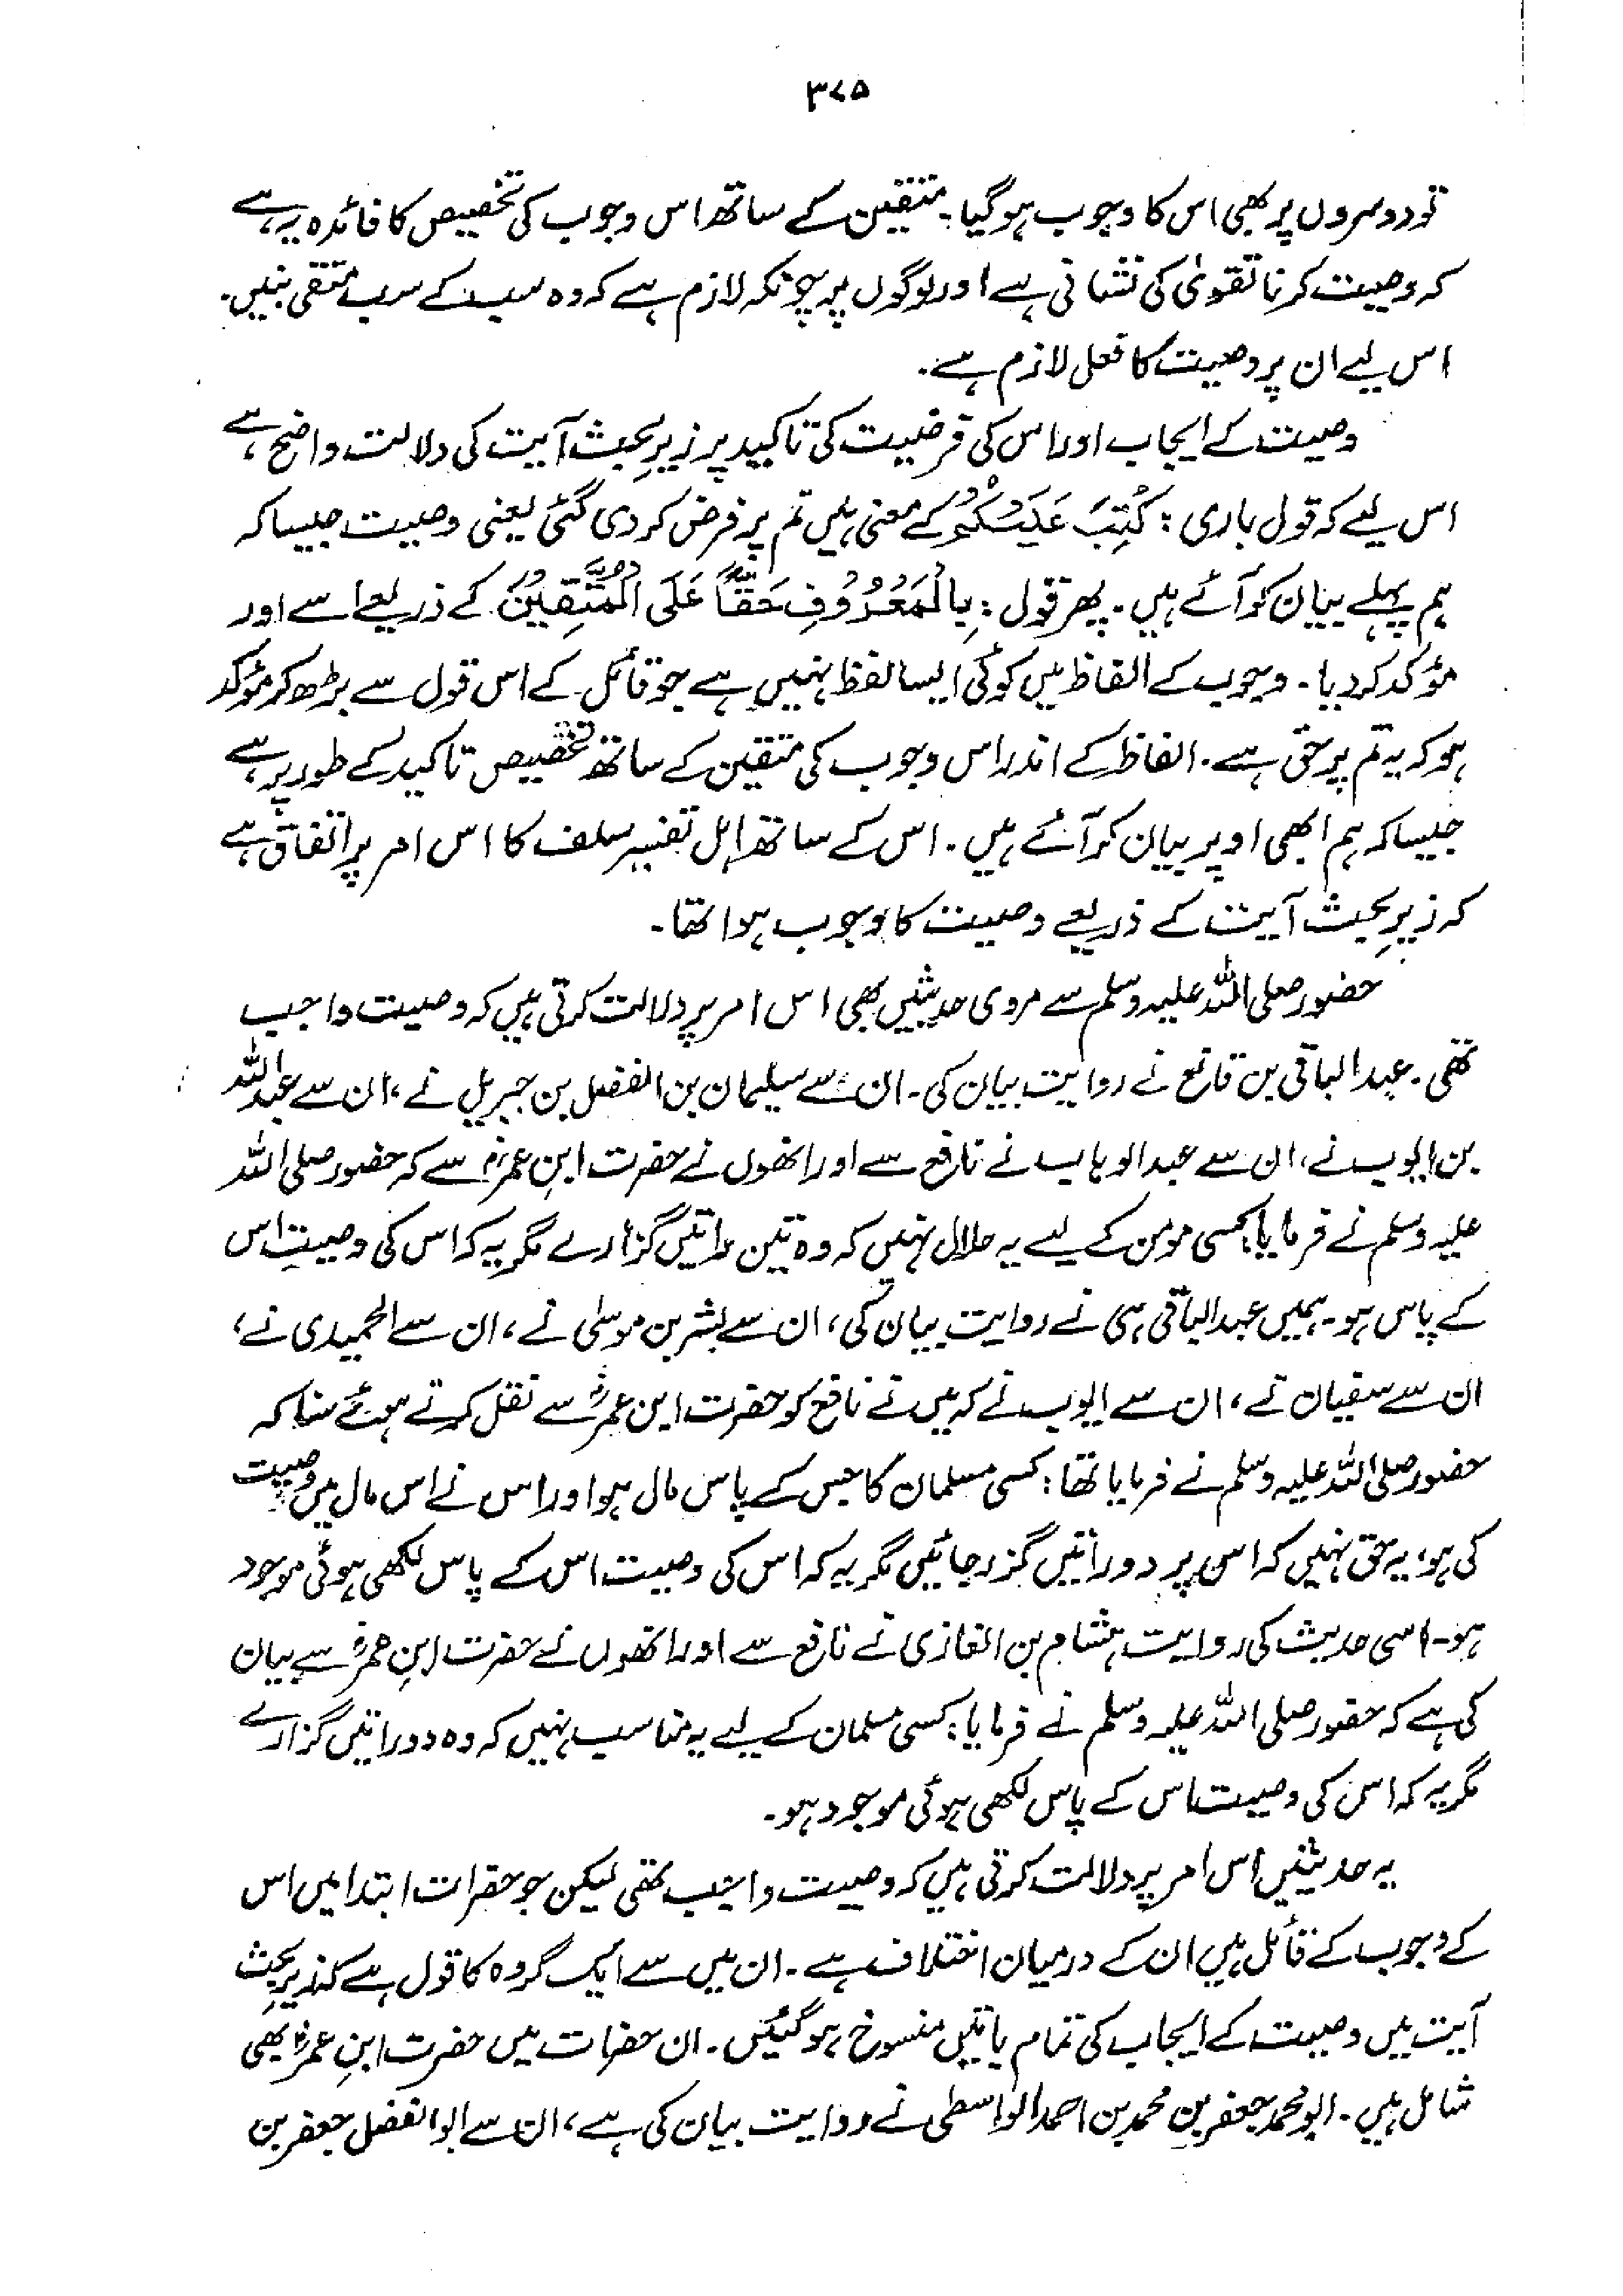 ۳۷۵
تو دوسروں پر بھی اس کا وجوب ہو گیا۔ متقین کے ساتھ اس وجوب کی تخصیص کا فائدہ یہ ہے
کہ وصیت کرنا تقویٰ کی نشانی ہے اور لوگوں پر چونکہ لازم ہے کہ وہ سب کے سب متقی بنیں۔
اس لیے ان پر وصیت کا فعل لازم ہے۔
وصیت کے ایجاب اور اس کی فرضیت کی تاکید پر زیرِ بحث آیت کی دلالت واضح ہے،
اس لیے کہ قول باری: كُتِبَ عَلَيْكُمْ کے معنی ہیں تم پر فرض کر دی گئی یعنی وصیت جیسا کہ
ہم پہلے بیان کر آئے ہیں۔ پھر قول: بِالْمَعْرُوفِ حَقًّا عَلَى الْمُتَّقِينَ کے ذریعے اسے اور
مؤکد کر دیا۔ وجوب کے الفاظ میں کوئی ایسا لفظ نہیں ہے جو قائل کے اس قول سے بڑھ کر مؤکد
ہو کہ یہ تم پر حق ہے۔ الفاظ کے اندر اس وجوب کی متقین کے ساتھ تخصیص تاکید کے طور پر ہے
جیسا کہ ہم ابھی اوپر بیان کر آئے ہیں۔ اس کے ساتھ اہل تفسیر سلف کا اس امر پر اتفاق ہے
کہ زیرِ بحث آیت کے ذریعے وصیت کا وجوب ہوا تھا۔
حضور صلی اللہ علیہ وسلم سے مروی حدیثیں بھی اس امر پر دلالت کرتی ہیں کہ وصیت واجب
تھی۔ عبدالباقی بن قانع نے روایت بیان کی۔ ان سے سلیمان بن الفضل بن جبریل نے، ان سے عبداللہ
بن ایوب نے، ان سے عبدالوہاب نے نافع سے اور انھوں نے حضرت ابنِ عمرؓ سے کہ حضور صلی اللہ
علیہ وسلم نے فرمایا: کسی مومن کے لیے یہ حلال نہیں کہ وہ تین راتیں گزارے مگر یہ کہ اس کی وصیت اس
کے پاس ہو۔ ہمیں عبدالباقی ہی نے روایت بیان کی، ان سے بشر بن موسٰی نے، ان سے الحمیدی نے،
ان سے سفیان نے، ان سے ایوب نے کہ میں نے نافع کو حضرت ابن عمرؓ سے نقل کرتے ہوئے سنا کہ
حضور صلی اللہ علیہ وسلم نے فرمایا تھا: کسی مسلمان کا جس کے پاس مال ہو اور اس نے اس مال میں وصیت
کی ہو، یہ حق نہیں کہ اس پر دو راتیں گزر جائیں مگر یہ کہ اس کی وصیت اس کے پاس لکھی ہوئی موجود
ہو۔ اسی حدیث کی روایت ہشام بن الغازی نے نافع سے اور انھوں نے حضرت ابنِ عمرؓ سے بیان
کی ہے کہ حضور صلی اللہ علیہ وسلم نے فرمایا: کسی مسلمان کے لیے یہ مناسب نہیں کہ وہ دو راتیں گزارے
مگر یہ کہ اس کی وصیت اس کے پاس لکھی ہوئی موجود ہو۔
یہ حدیثیں اس امر پر دلالت کرتی ہیں کہ وصیت واجب تھی لیکن جو حضرات ابتدا میں اس
کے وجوب کے قائل ہیں ان کے درمیان اختلاف ہے۔ ان میں سے ایک گروہ کا قول ہے کہ زیرِ بحث
آیت میں وصیت کے ایجاب کی تمام باتیں منسوخ ہو گئیں۔ ان حضرات میں حضرت ابنِ عمرؓ بھی
شامل ہیں۔ ابو محمد جعفر بن محمد بن احمد الواسطی نے روایت بیان کی ہے، ان سے ابوالفضل جعفر بن